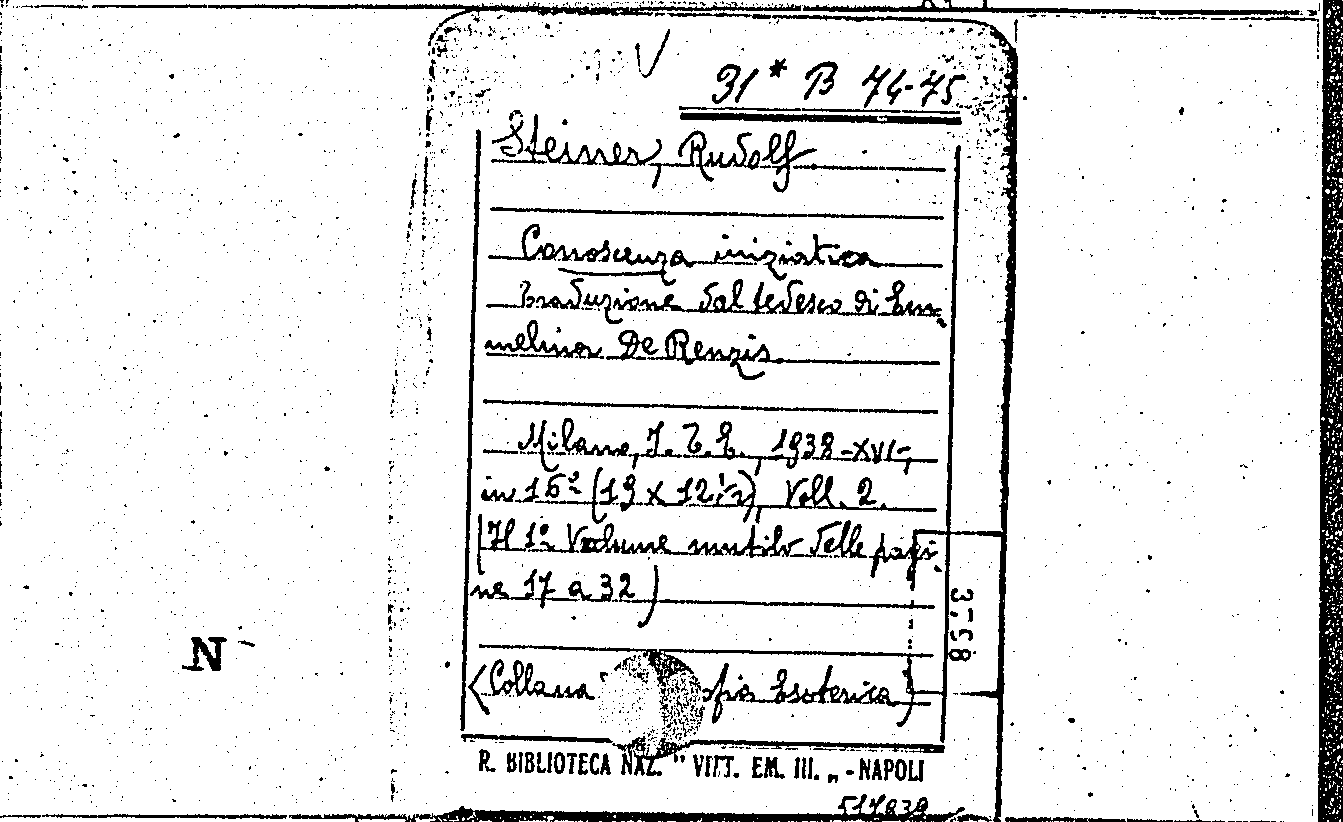 V
91* B 74-75
Steiner, Rudolf
Conoscenza iniziatica
Traduzione dal tedesco di Em-
melina De Renzis.
Milano, I. T. E., 1938-XVI-,
in 16º (19 x 12 ½), Voll. 2.
(Il 1º Volume mutilo delle pagi-
ne 17 a 32)
(Collana ofia Esoterica)
R. BIBLIOTECA NAZ. " VITT. EM. III. „ - NAPOLI
517839
3798
N